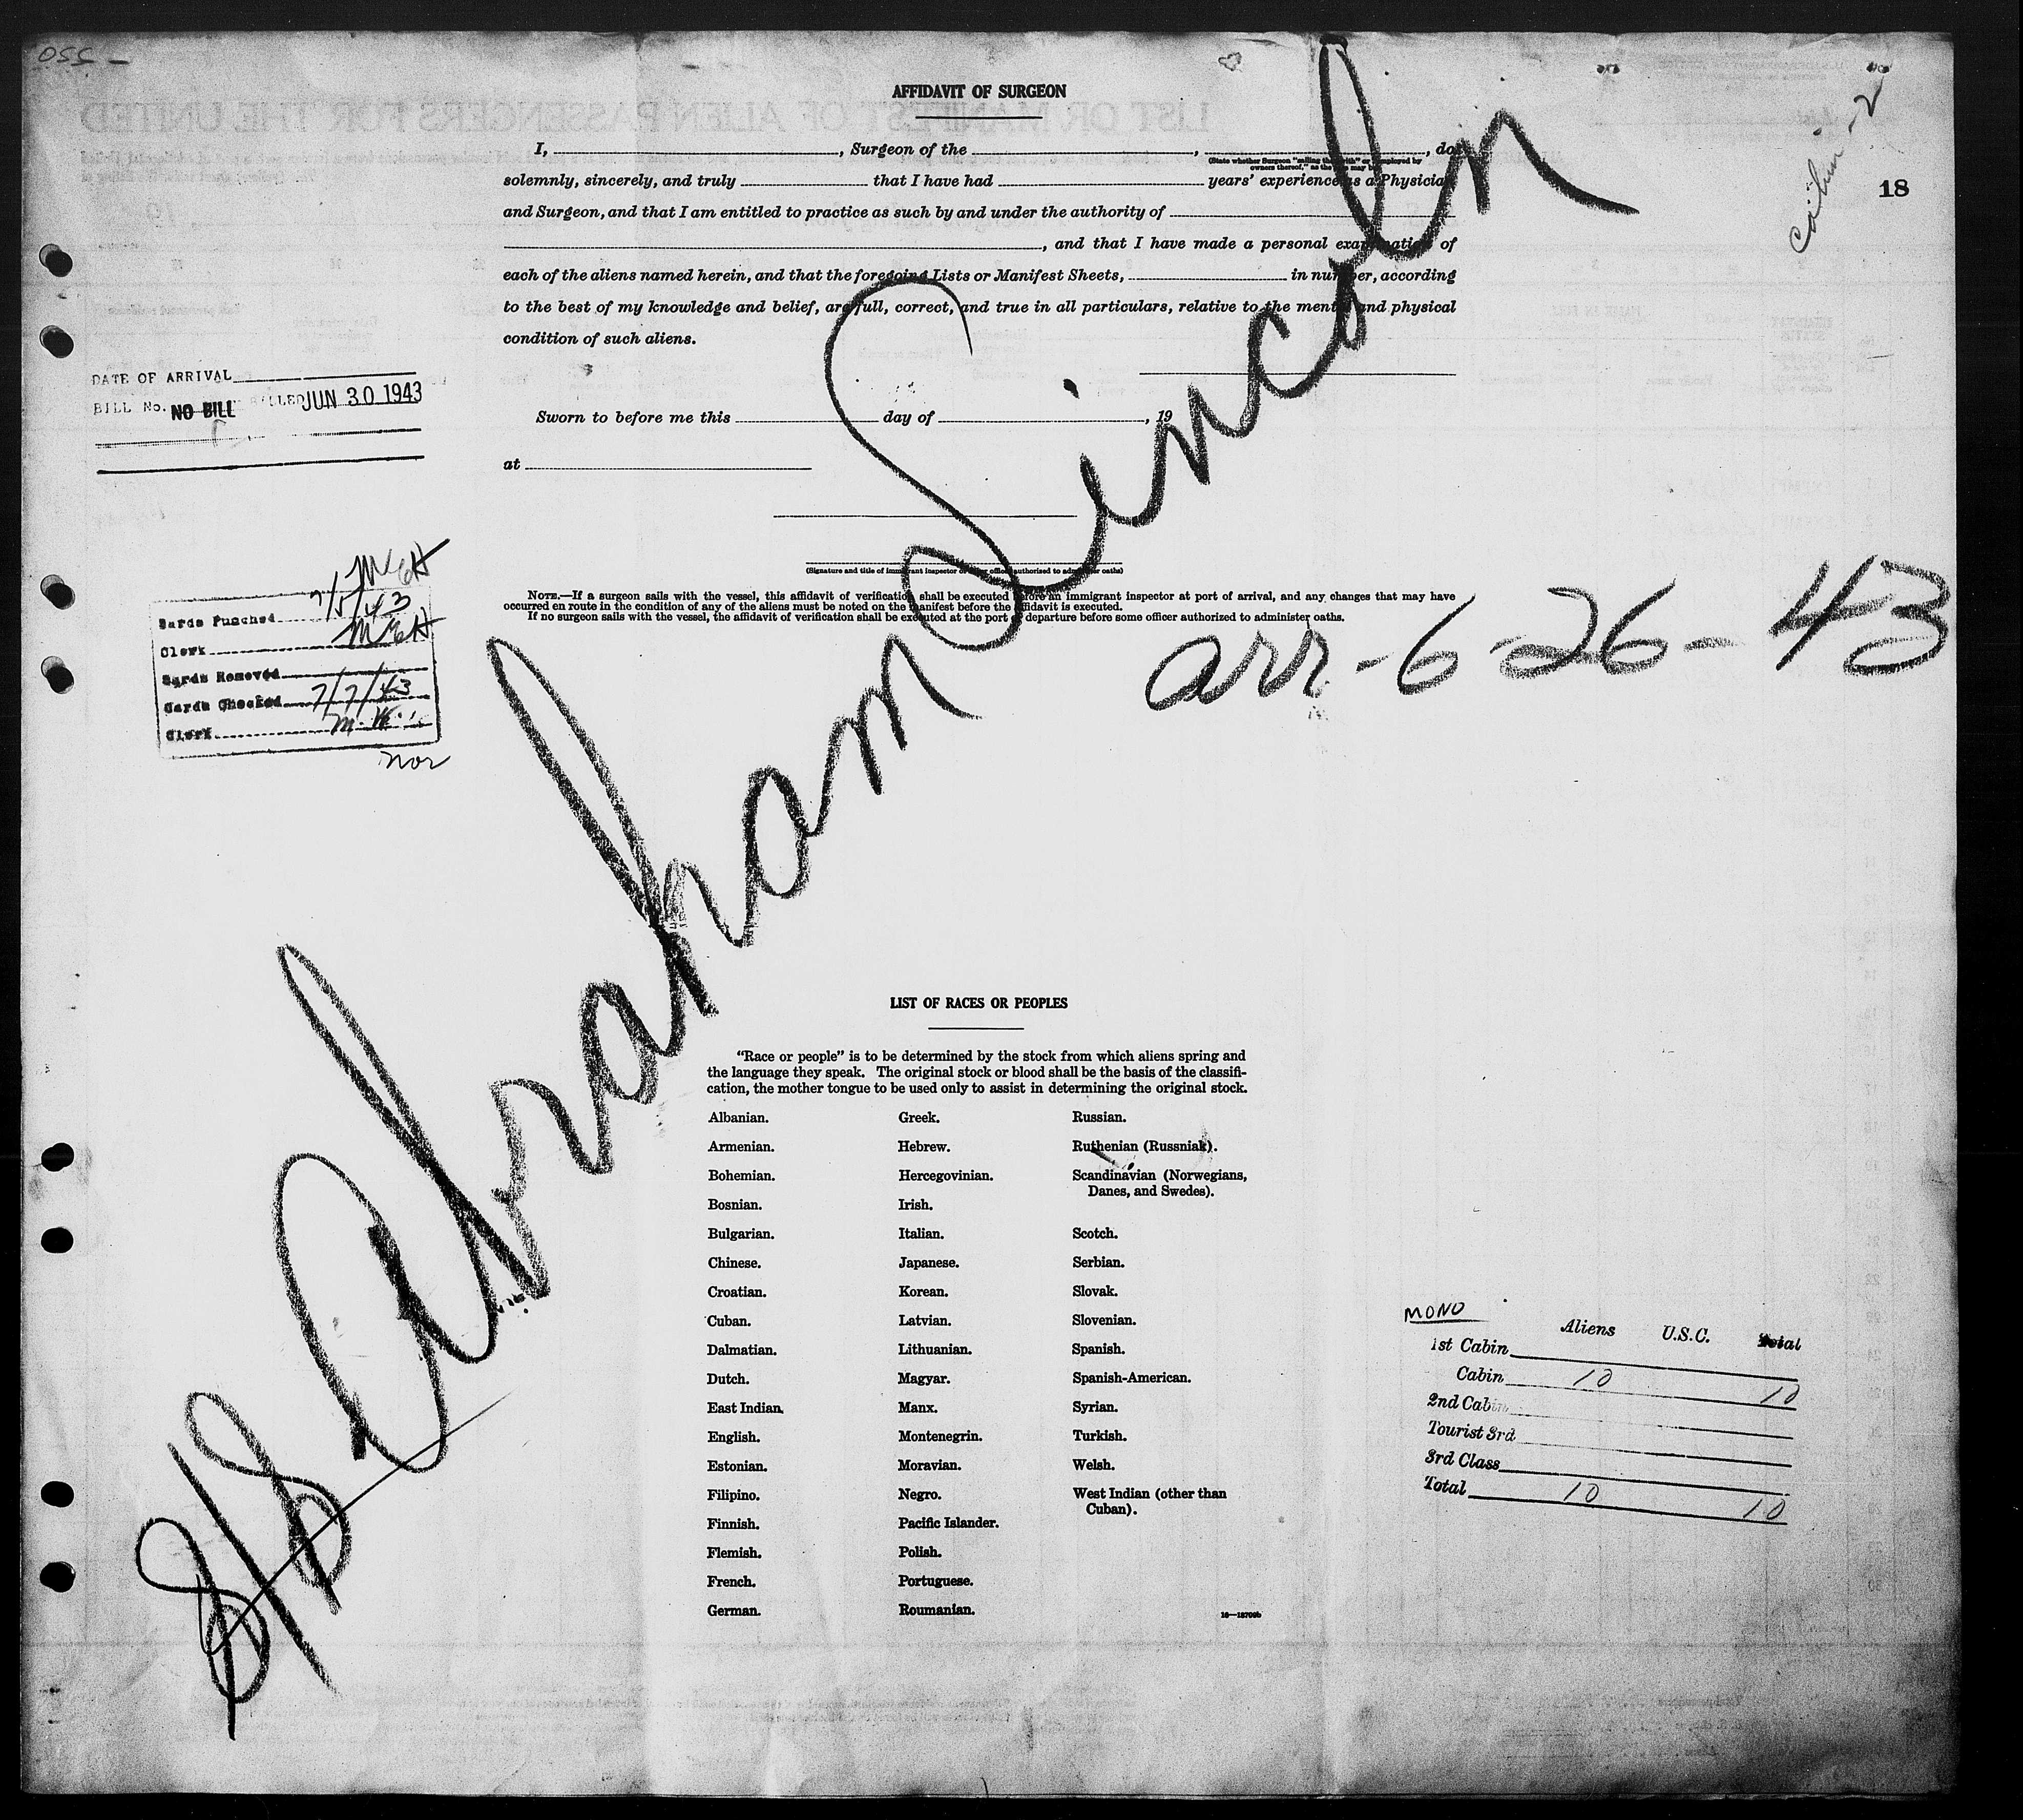 550 -
AFFIDAVIT OF SURGEON
I, , Surgeon of the , , do
(State whether Surgeon "sailing therewith" or "employed by owners thereof," as the case may be)
solemnly, sincerely, and truly that I have had years' experience as a Physician
and Surgeon, and that I am entitled to practice as such by and under the authority of
, and that I have made a personal examination of
each of the aliens named herein, and that the foregoing Lists or Manifest Sheets, in number, according
to the best of my knowledge and belief, are full, correct, and true in all particulars, relative to the mental and physical
condition of such aliens.
Sworn to before me this day of , 19
at
(Signature and title of immigrant inspector or other officer authorized to administer oaths)
NOTE.—If a surgeon sails with the vessel, this affidavit of verification shall be executed before an immigrant inspector at port of arrival, and any changes that may have
occurred en route in the condition of any of the aliens must be noted on the manifest before the affidavit is executed.
If no surgeon sails with the vessel, the affidavit of verification shall be executed at the port of departure before some officer authorized to administer oaths.
18
DATE OF ARRIVAL
BILL No. NO BILL BILLED JUN 30 1943
Cards Punched 7/5/43
Clerk
Cards Removed
Cards Checked 7/7/43
Clerk
nor
S/S Abraham Lincoln
arr-6-26-43
LIST OF RACES OR PEOPLES
"Race or people" is to be determined by the stock from which aliens spring and
the language they speak. The original stock or blood shall be the basis of the classifi-
cation, the mother tongue to be used only to assist in determining the original stock.
Albanian.
Armenian.
Bohemian.
Bosnian.
Bulgarian.
Chinese.
Croatian.
Cuban.
Dalmatian.
Dutch.
East Indian.
English.
Estonian.
Filipino.
Finnish.
Flemish.
French.
German.
Greek.
Hebrew.
Hercegovinian.
Irish.
Italian.
Japanese.
Korean.
Latvian.
Lithuanian.
Magyar.
Manx.
Montenegrin.
Moravian.
Negro.
Pacific Islander.
Polish.
Portuguese.
Roumanian.
Russian.
Ruthenian (Russniak).
Scandinavian (Norwegians,
Danes, and Swedes).
Scotch.
Serbian.
Slovak.
Slovenian.
Spanish.
Spanish-American.
Syrian.
Turkish.
Welsh.
West Indian (other than
Cuban).
MONO
Aliens U.S.C. Total
1st Cabin
Cabin 10 10
2nd Cabin
Tourist 3rd
3rd Class
Total 10 10